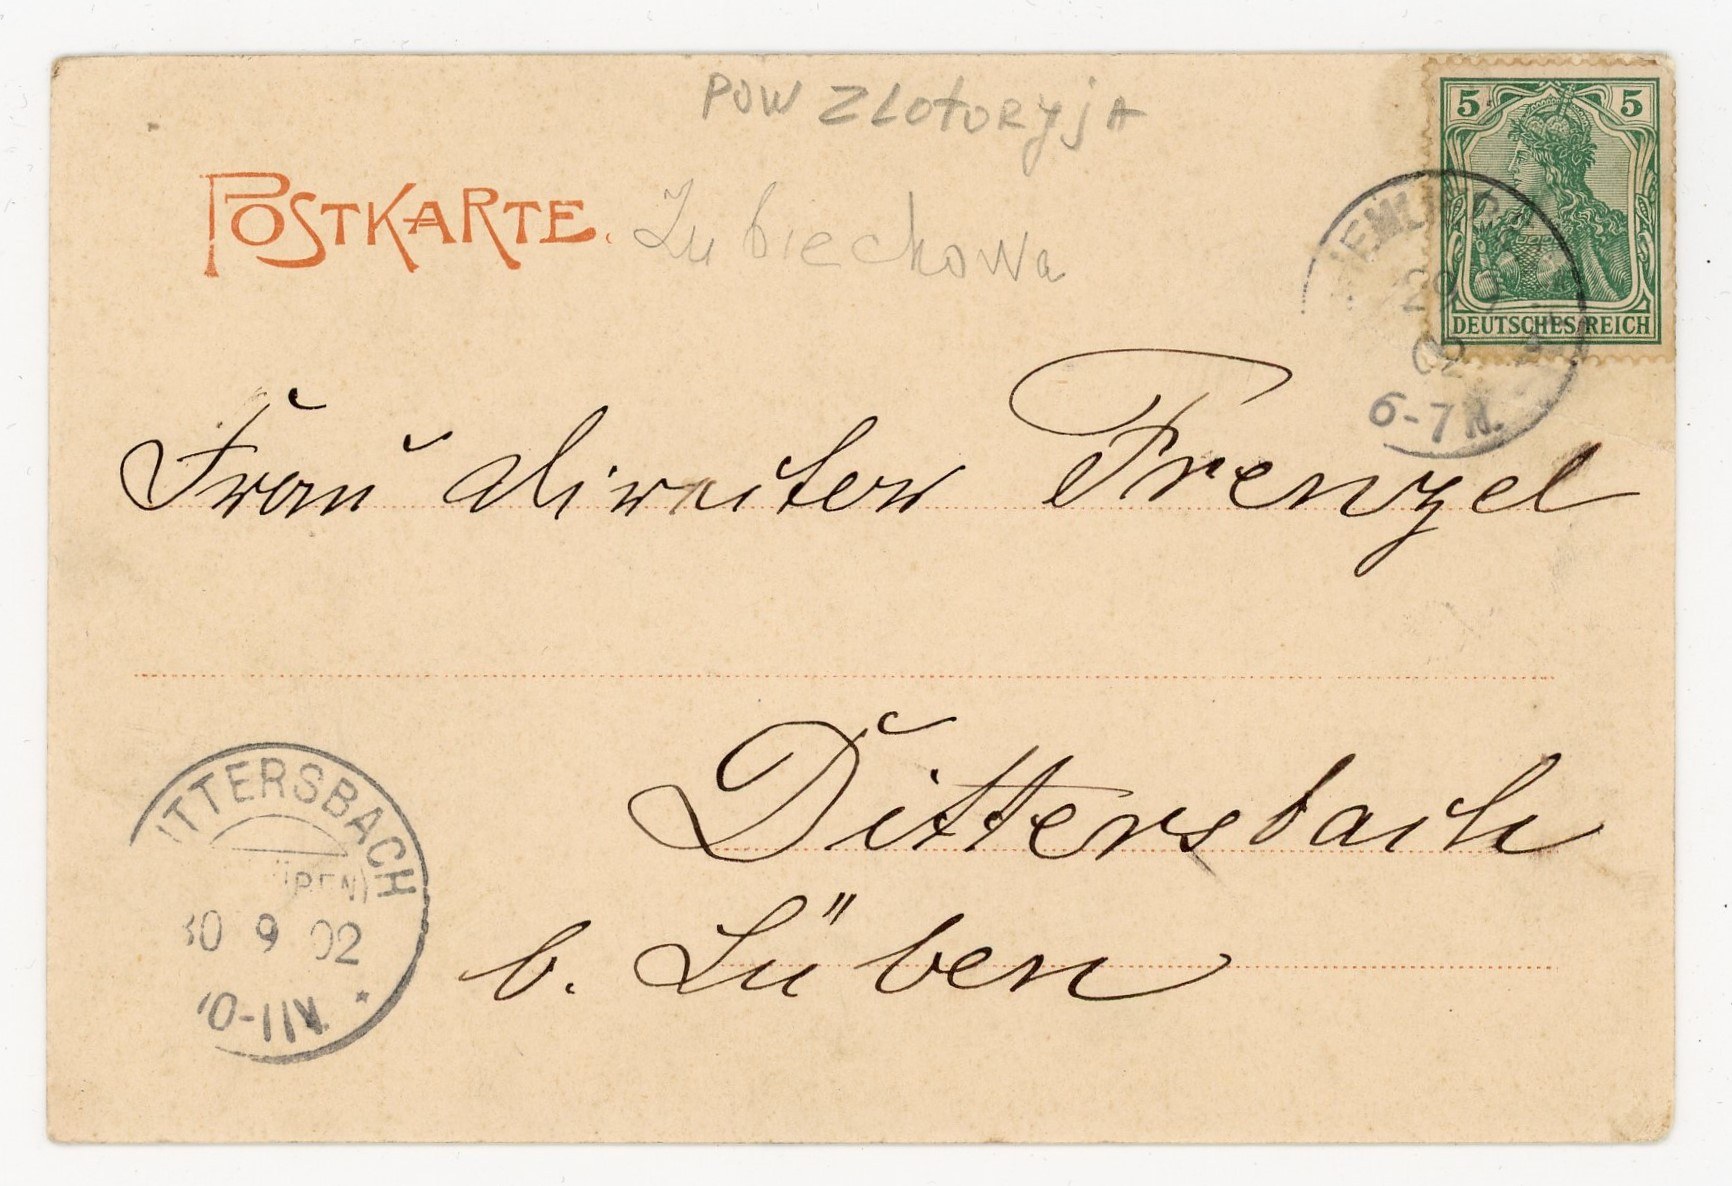 POW ZLOTORYJA
POSTKARTE.
Lubiechowa
5 5
DEUTSCHES REICH
29 9
02
6-7 N.
Frau Direktor Frenzel
Dittersbach
b. Lüben
DITTERSBACH
30 9 02
10-11 V.
*